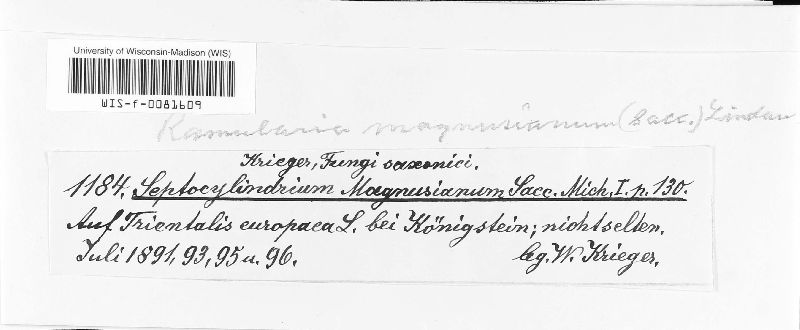 University of Wisconsin-Madison (WIS)
WIS-f-0081609
Ramularia magnusianum (Sacc.) Lindau
Krieger, Fungi saxonici.
1184. Septocylindrium Magnusianum Sacc. Mich. I. p. 130.
Auf Trientalis europaea L. bei Königstein; nicht selten.
Juli 1891, 93, 95 u. 96. leg. W. Krieger.